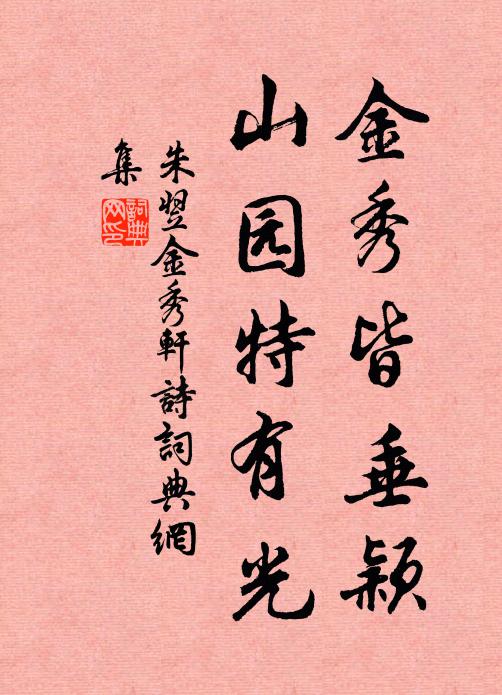 金秀皆垂颖
山园特有光
朱翌金秀軒詩詞典網
集
詞典网印